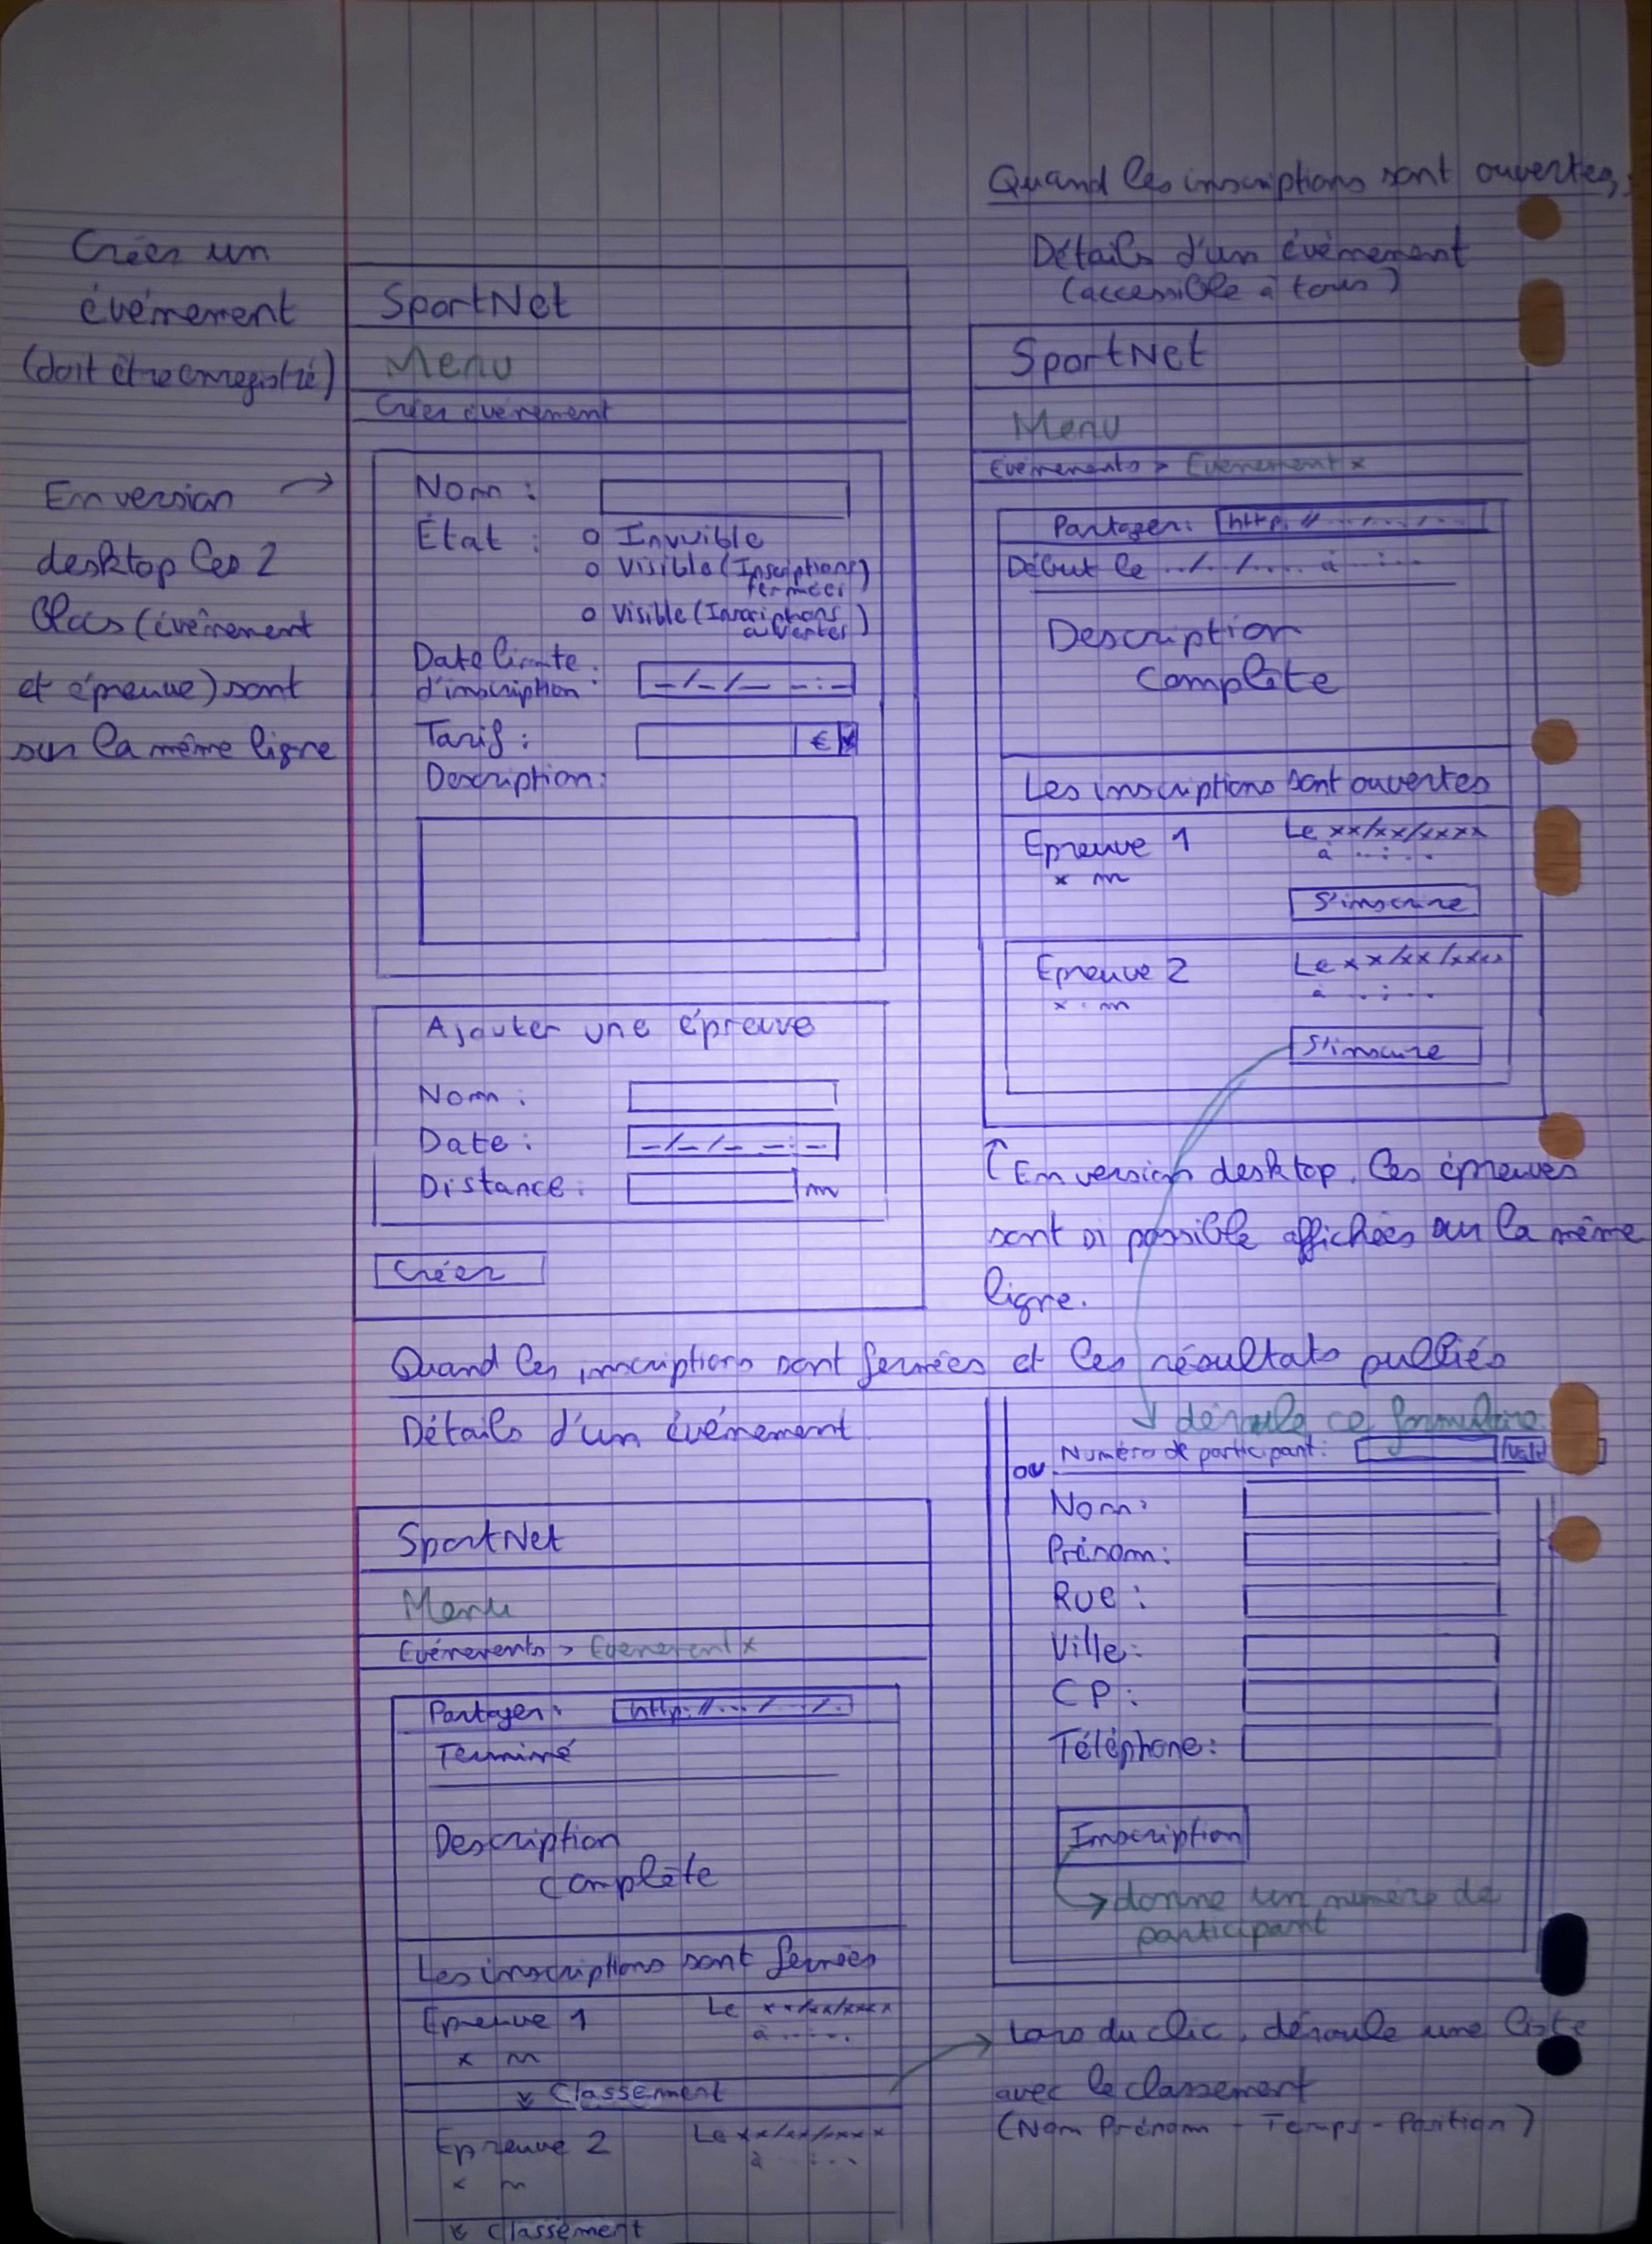 Créer un
événement
(doit être enregistré)
En version →
desktop les 2
blocs (événement
et épreuve) sont
sur la même ligne
SportNet
Menu
Créer événement
Nom :
État : o Invisible
o Visible (Inscriptions
fermées)
o Visible (Inscriptions
ouvertes)
Date limite
d'inscription : _/_/__ _:_
Tarif : €
Description :
Ajouter une épreuve
Nom :
Date : _/_/_ _:_
Distance : m
Créer
Quand les inscriptions sont ouvertes,
Détails d'un événement
(accessible à tous)
SportNet
Menu
Evénements > Evenement x
Partager : http://.../.../...
Début le ../../.... à ..:..
Description
complète
Les inscriptions sont ouvertes
Epreuve 1 Le xx/xx/xxxx
x m à ..:..
S'inscrire
Epreuve 2 Le xx/xx/xxxx
x m à ..:..
S'inscrire
↑ En version desktop, les épreuves
sont si possible affichées sur la même
ligne.
Quand les inscriptions sont fermées et les résultats publiés
Détails d'un événement
SportNet
Menu
Evénements > Evenement x
Partager : http://.../.../.
Terminé
Description
complète
Les inscriptions sont fermées
Epreuve 1 Le xx/xx/xxxx
x m à ..:..
Classement
Epreuve 2 Le xx/xx/xxxx
x m à ..:..
Classement
↓ déroule ce formulaire
ou Numéro de participant :
Nom :
Prénom :
Rue :
Ville :
CP :
Téléphone :
Inscription
→ donne un numéro de
participant
→ Lors du clic, déroule une liste
avec le classement
(Nom Prénom - Temps - Position)